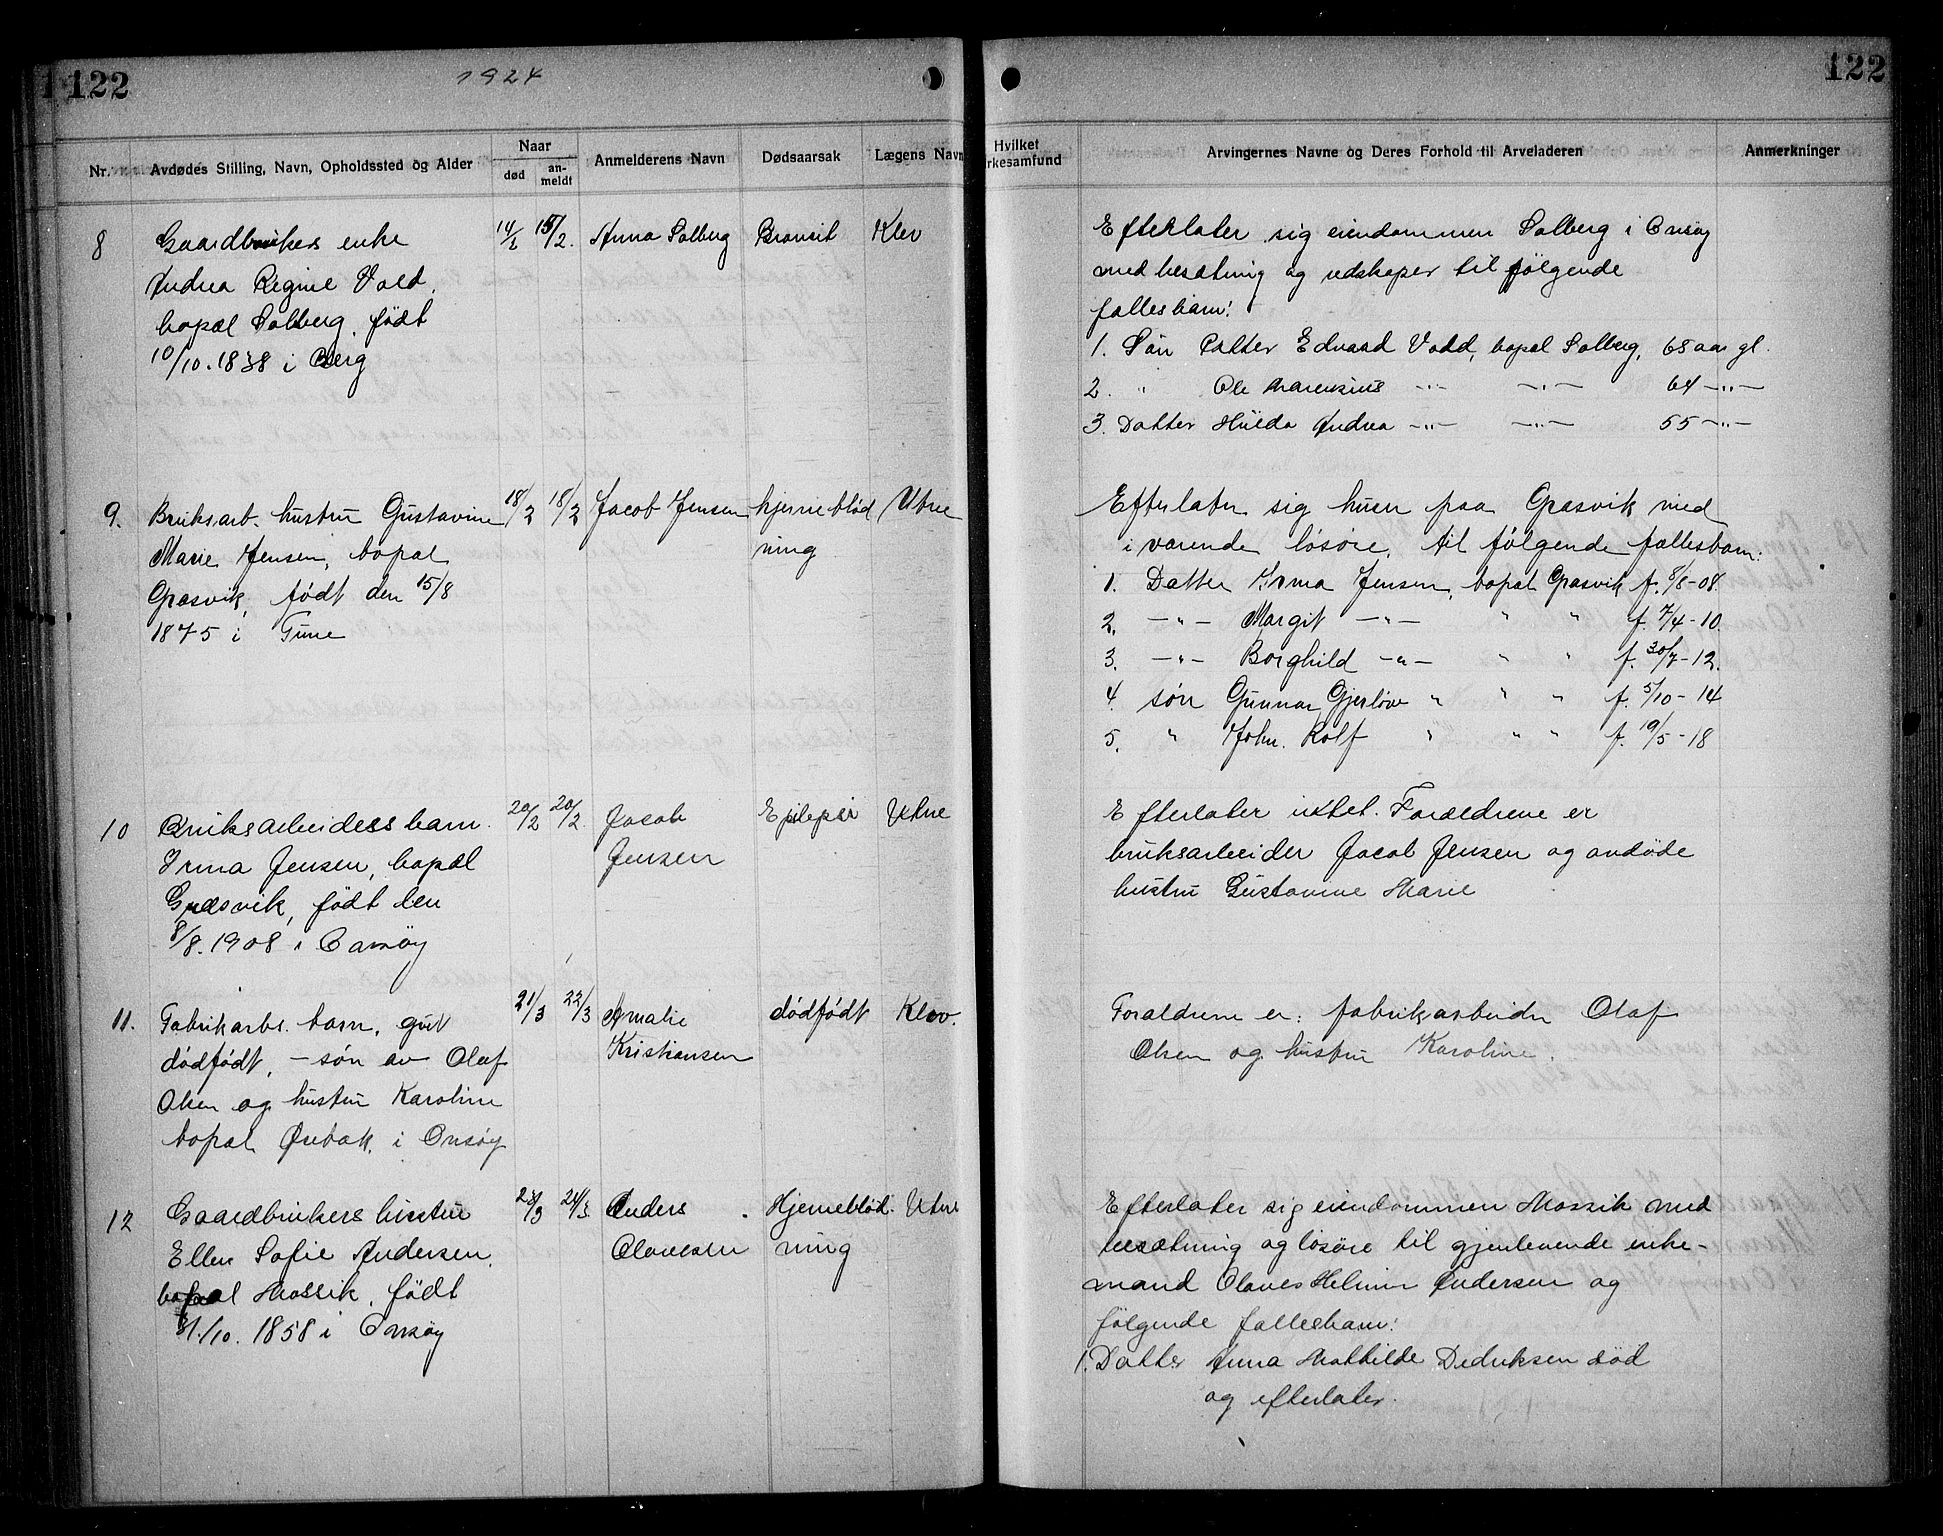 122
1924
122
Nr. Avdødes Stilling, Navn, Opholdssted og Alder Naar død an-meldt Anmelderens Navn Dødsaarsak Lægens Navn Hvilket rkesamfund Arvingernes Navne og Deres Forhold til Arveladeren Anmerkninger
8 Gaardbrukers enke 14/2 15/2. Anna Solberg Bronsit Klev
Andrea Regine Vold,
bopæl Solberg, født
10/10. 1838 i Berg
Efterlater sig eiendommen Solberg i Onsøy
med besætning og redskaper til følgende
fællesbarn:
1. Søn Petter Edvard Vold, bopæl Solberg, 68 aar gl.
2. " Ole Marensius —"— —"— 64 —"—
3. Datter Hulda Andrea —"— —"— 55 —"—
9. Bruksarb. hustru Gustavine 18/2 18/2 Jacob Jensen hjerneblød Utne
Marie Jensen, bopæl ning
Græsvik, født den 15/8
1875 i Tune
Efterlater sig huen paa Græsvik med
ivarende løsøre, til følgende fællesbarn:
1. Datter Irma Jensen, bopæl Græsvik f. 8/8-08.
2. —"— Margit —"— " " f. 7/4-10.
3. —"— Borghild —"— " " f. 30/7-12.
4. søn Gunnar Gjerløw " " " f. 5/10-14
5. " John. Rolf " " " f. 19/5-18
10 Bruksarbeidess barn. 20/2 20/2. Jacob Epilepsi Utne
Irma Jensen, bopæl Jensen
Græsvik, født den
8/8. 1908 i Onsøy
Efterlater intet. Forældrene er
bruksarbeider Jacob Jensen og avdøde
hustru Gustavine Marie
11. Fabrikarbs. barn, gut 21/3 22/3 Amalie dødfødt Klev.
dødfødt, — søn av Olaf Kristiansen
Olsen og hustru Karoline
bopæl Ørebæk, i Onsøy
Forældrene er: fabrikarbeider Olaf
Olsen og hustru Karoline.
12 Gaardbrukers hustru 23/3 24/3 Anders Hjerneblød. Utne
Ellen Sofie Andersen, Olavesen ning
bopæl Mossik, født
31/10. 1858 i Onsøy
Efterlater sig eiendommen Mossik med
besætning og løsøre til gjenlevende enke-
mand Olaves Helmer Andersen og
følgende fællesbarn:
1. Datter Anna Mathilde Dedriksen død
og efterlater.